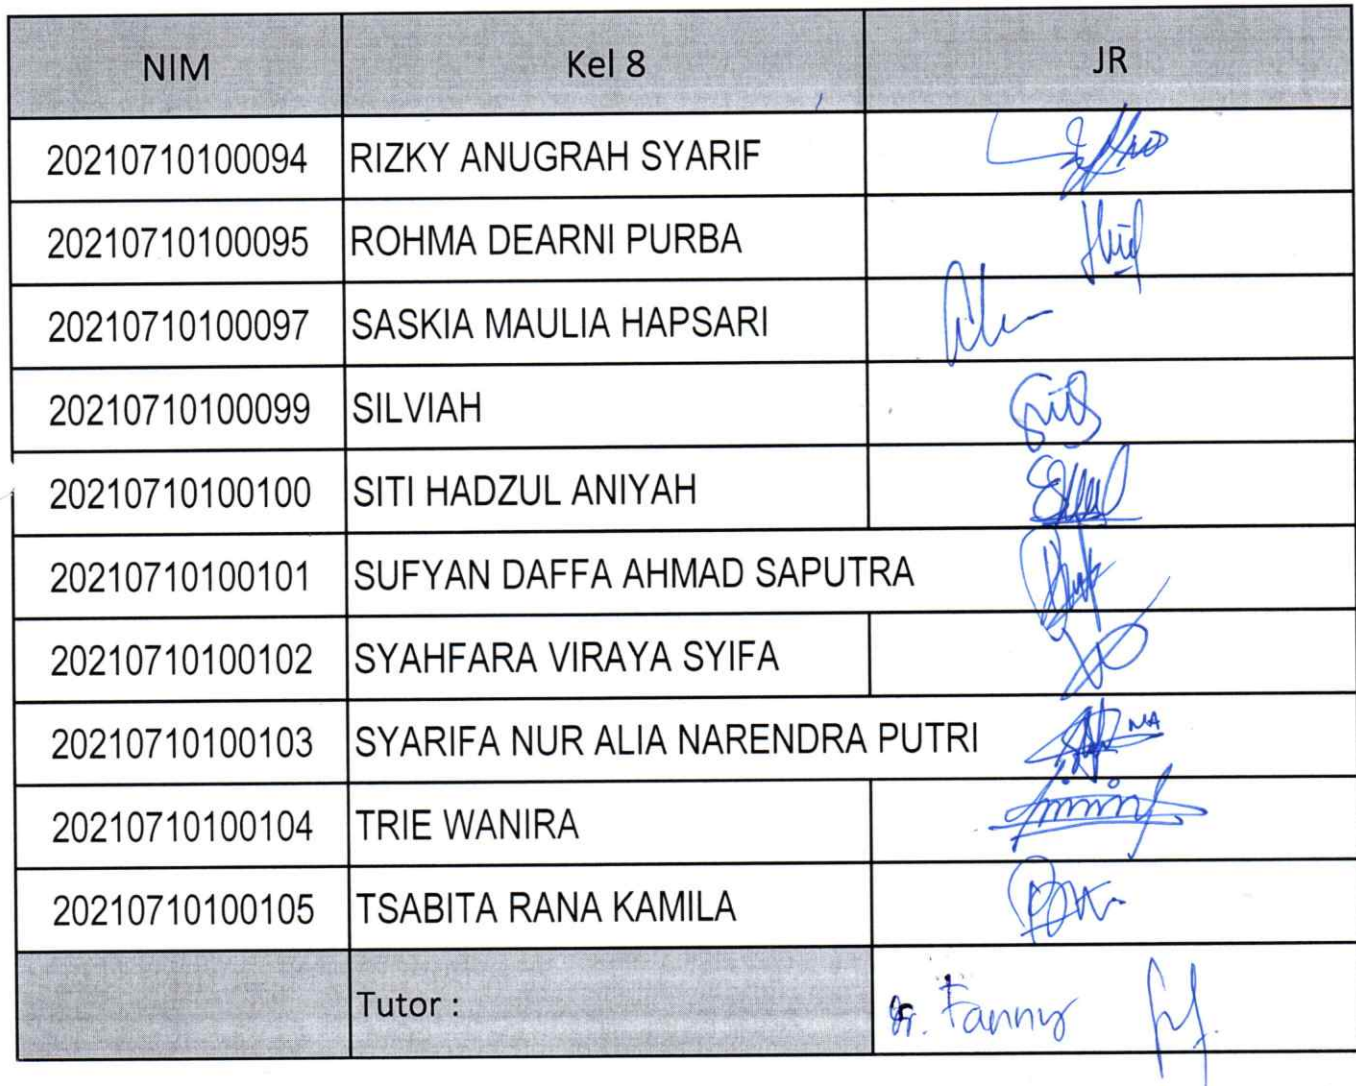 NIM Kel 8 JR
20210710100094 RIZKY ANUGRAH SYARIF
20210710100095 ROHMA DEARNI PURBA
20210710100097 SASKIA MAULIA HAPSARI
20210710100099 SILVIAH
20210710100100 SITI HADZUL ANIYAH
20210710100101 SUFYAN DAFFA AHMAD SAPUTRA
20210710100102 SYAHFARA VIRAYA SYIFA
20210710100103 SYARIFA NUR ALIA NARENDRA PUTRI
20210710100104 TRIE WANIRA
20210710100105 TSABITA RANA KAMILA
Tutor : dr. Fanny